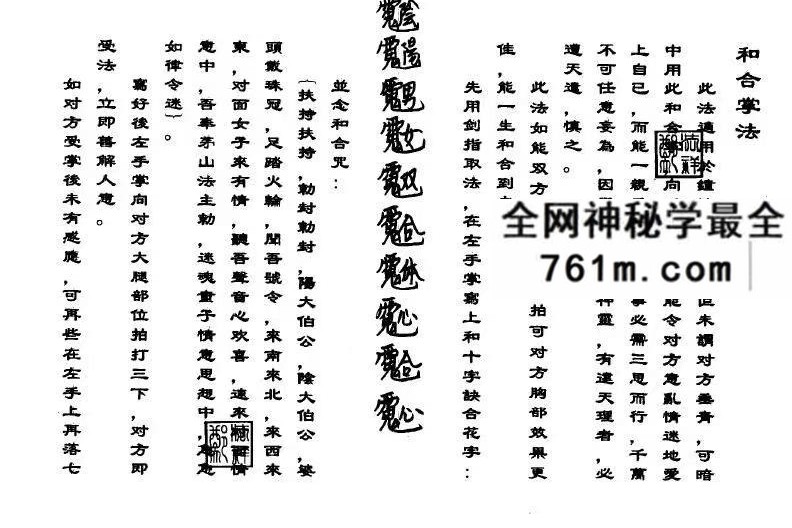 和合掌法
此法適用於鐘
但未謂对方垂青，可暗
中用此和合
向
能令对方意亂情迷地愛
上自己，而能一親
事必需三思而行，千萬
不可任意妄為，因
神靈，有違天理者，必
遭天遣，慎之。
此法如能双方
拍可对方胸部效果更
佳，能一生和合到
先用剑指取法，在左手掌寫上和十字訣合花字：
陰
陽
男
女
双
合
体
心
合
心
並念和合咒：
（扶持扶持，勅封勅封，陽大伯公，陰大伯公，婆
頭戴珠冠，足踏火輪，聞吾號令，來南來北，來西來
東，对面女子來有情，聽吾聲音心欢喜，速來
情
意中，吾奉茅山法主勅，迷魂童子情意思想中，
意
如律令迷）。
寫好後左手掌向对方大腿部位拍打三下，对方即
受法，立即善解人意。
如对方受掌後未有感應，可再些在左手上再落七
全网神秘学最全
761m.com